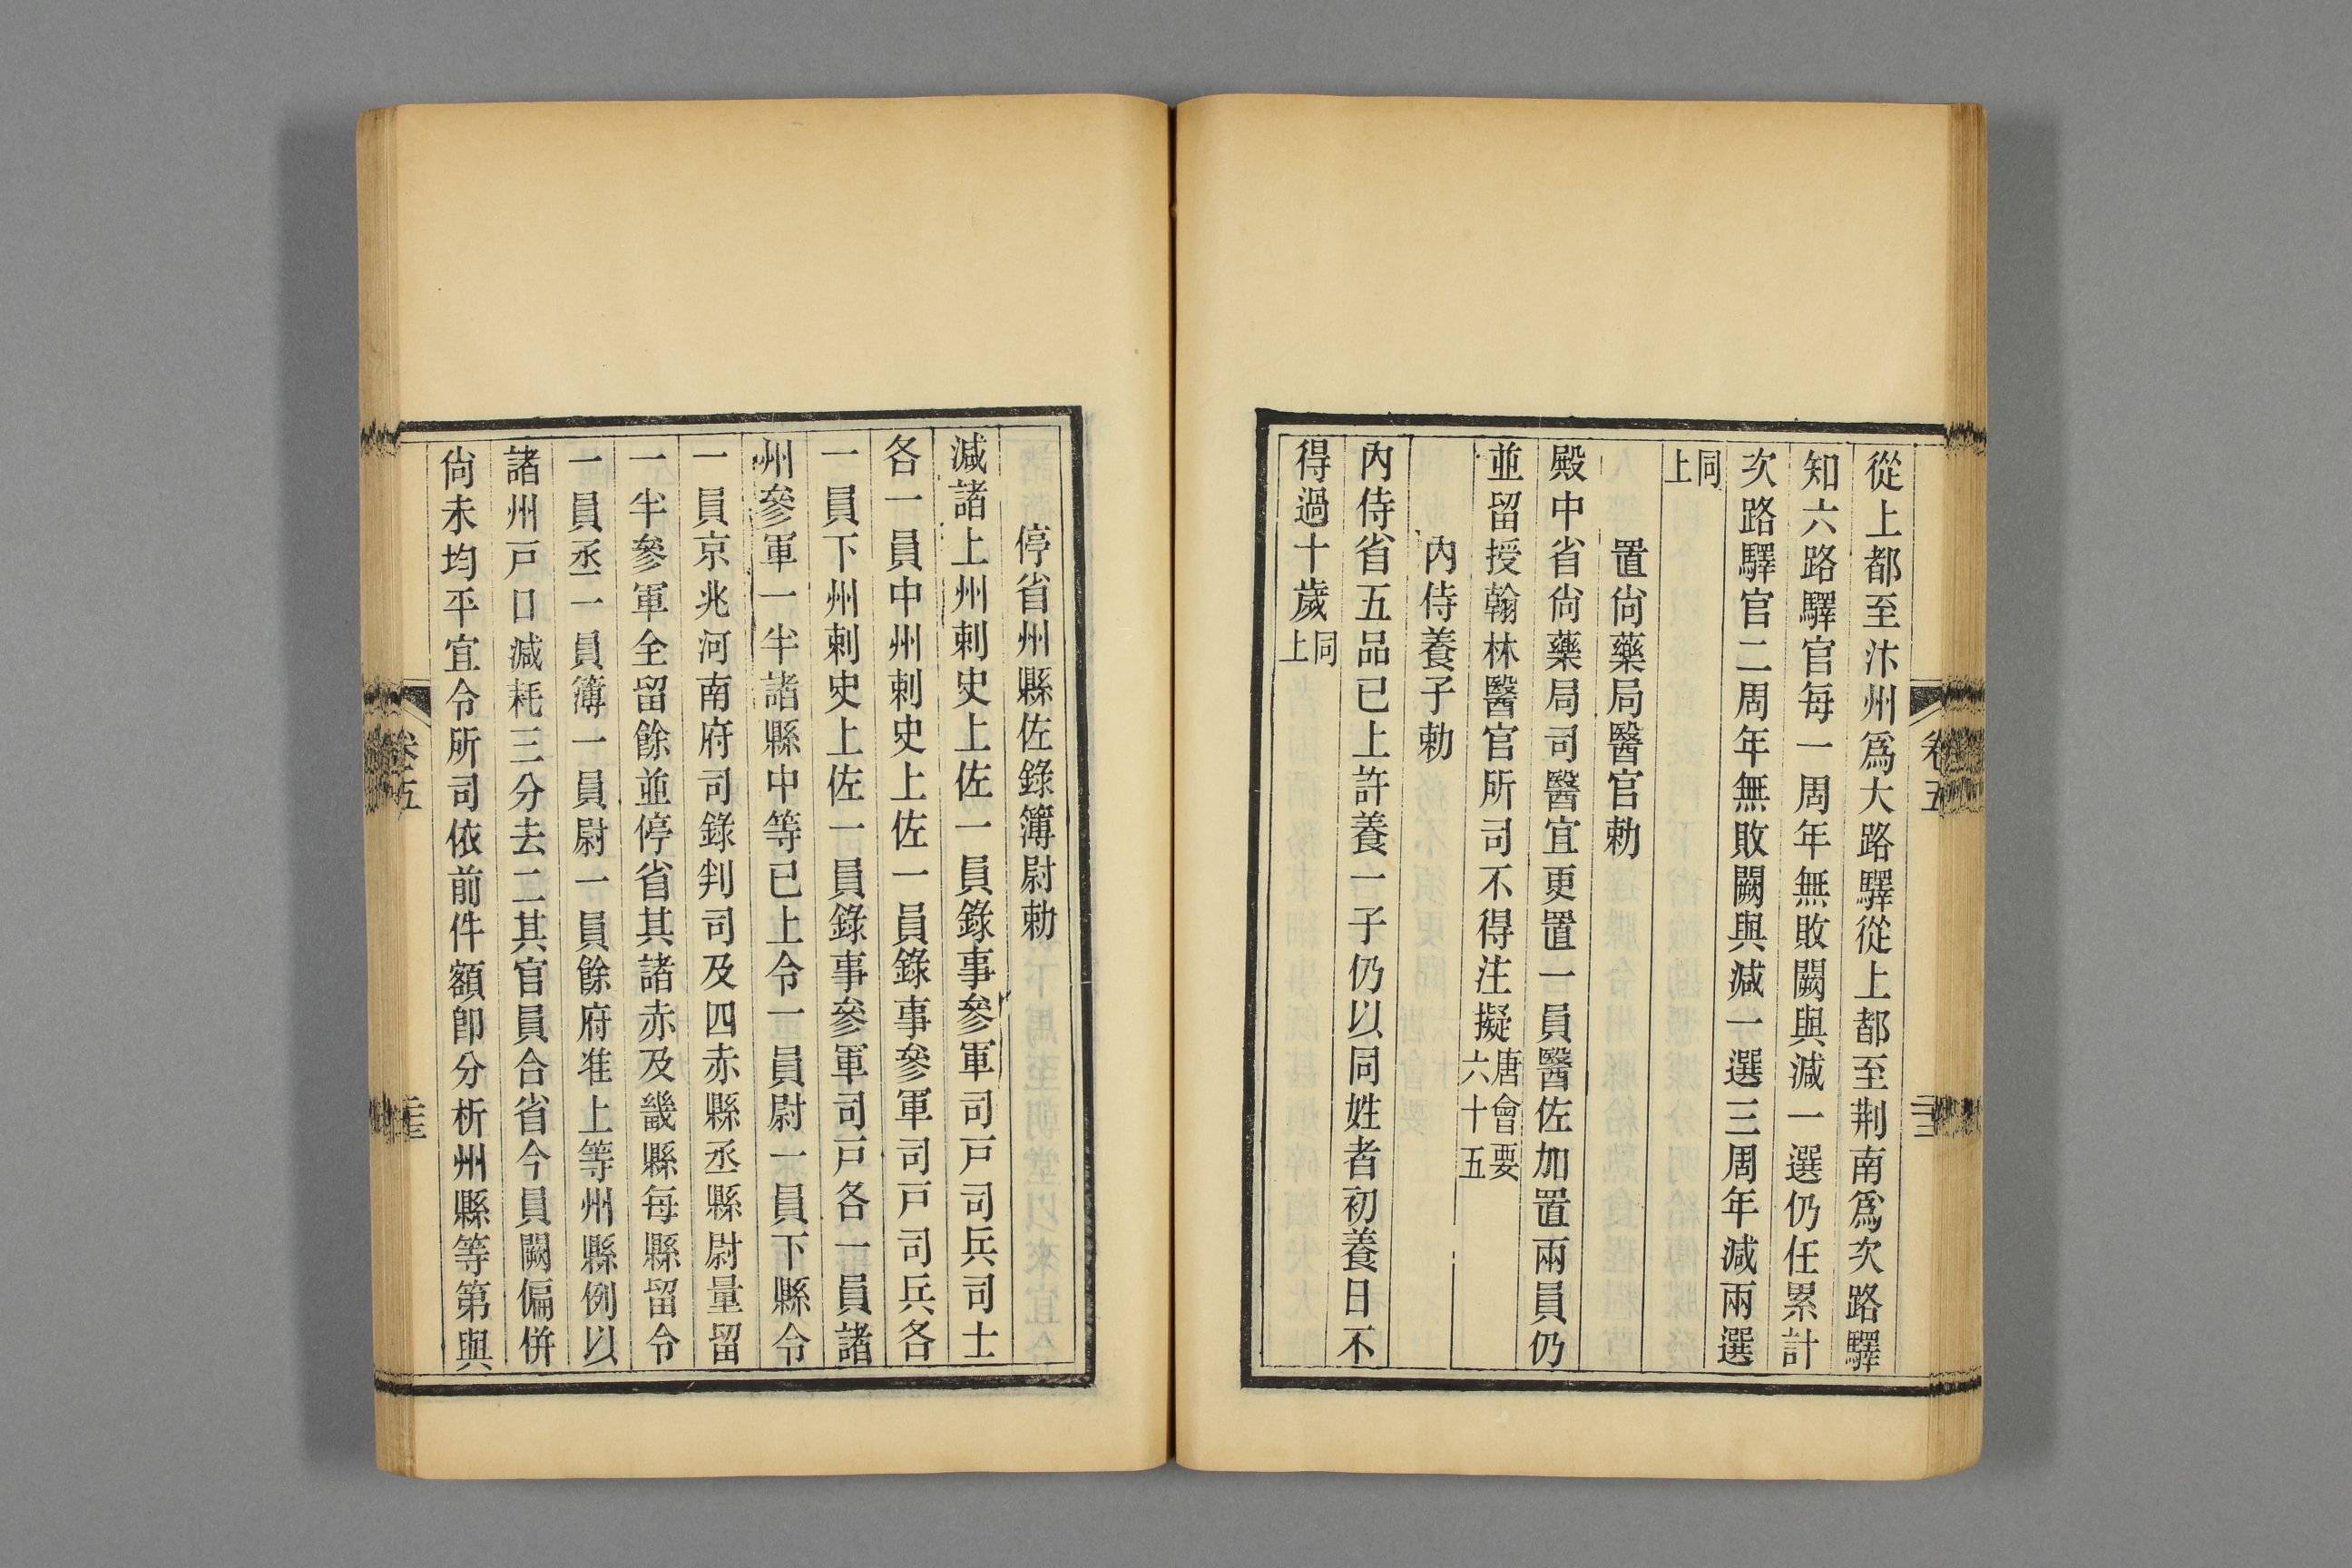 從上都至汴州爲大路驛從上都至荆南爲次路驛
知六路驛官每一周年無敗闕與減一選仍任累計
次路驛官二周年無敗闕與減一選三周年減兩選
同上
置尙藥局醫官勅
殿中省尙藥局司醫宜更置一員醫佐加置兩員仍
並留授翰林醫官所司不得注擬唐會要六十五
內侍養子勅
內侍省五品已上許養一子仍以同姓者初養日不
得過十歲同上
停省州縣佐錄簿尉勅
減諸上州刺史上佐一員錄事參軍司戸司兵司士
各一員中州刺史上佐一員錄事參軍司戸司兵各
一員下州刺史上佐一員錄事參軍司戸各一員諸
州參軍一半諸縣中等已上令一員尉一員下縣令
一員京兆河南府司錄判司及四赤縣丞縣尉量留
一半參軍全留餘並停省其諸赤及畿縣每縣留令
一員丞一員簿一員尉一員餘府准上等州縣例以
諸州戸口減耗三分去二其官員合省今員闕偏併
尙未均平宜令所司依前件額卽分析州縣等第與
卷五